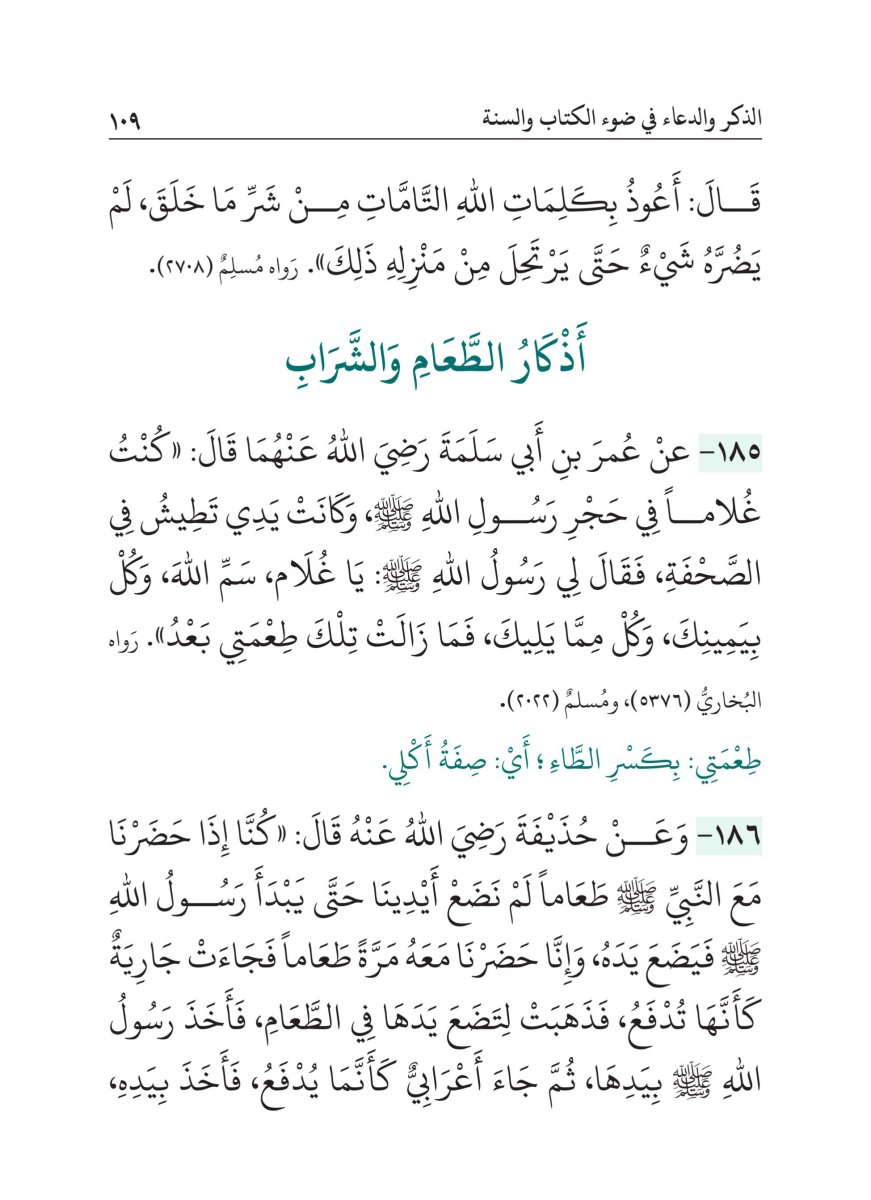 الذكر والدعاء في ضوء الكتاب والسنة ١٠٩
قَـــالَ: أَعُوذُ بِكَلِمَاتِ اللهِ التَّامَّاتِ مِـــنْ شَرِّ مَا خَلَقَ، لَمْ
يَضُرَّهُ شَيْءٌ حَتَّى يَرْتَحِلَ مِنْ مَنْزِلِهِ ذَلِكَ». رَواه مُسلِمٌ (٢٧٠٨).
أَذْكَارُ الطَّعَامِ وَالشَّرَابِ
١٨٥- عنْ عُمرَ بنِ أَبي سَلَمَةَ رَضِيَ اللهُ عَنْهُمَا قَالَ: «كُنْتُ
غُلامـــاً فِي حَجْرِ رَسُـــولِ اللهِ ﷺ، وَكَانَتْ يَدِي تَطِيشُ فِي
الصَّحْفَةِ، فَقَالَ لِي رَسُولُ اللهِ ﷺ: يَا غُلَام، سَمِّ اللهَ، وَكُلْ
بِيَمِينِكَ، وَكُلْ مِمَّا يَلِيكَ، فَمَا زَالَتْ تِلْكَ طِعْمَتِي بَعْدُ». رَواه
البُخاريُّ (٥٣٧٦)، ومُسلمٌ (٢٠٢٢).
طِعْمَتِي: بِكَسْرِ الطَّاءِ؛ أَيْ: صِفَةُ أَكْلِي.
١٨٦- وَعَـــنْ حُذَيْفَةَ رَضِيَ اللهُ عَنْهُ قَالَ: «كُنَّا إِذَا حَضَرْنَا
مَعَ النَّبِيِّ ﷺ طَعَاماً لَمْ نَضَعْ أَيْدِينَا حَتَّى يَبْدَأَ رَسُـــولُ اللهِ
ﷺ فَيَضَعَ يَدَهُ، وَإِنَّا حَضَرْنَا مَعَهُ مَرَّةً طَعَاماً فَجَاءَتْ جَارِيَةٌ
كَأَنَّهَا تُدْفَعُ، فَذَهَبَتْ لِتَضَعَ يَدَهَا فِي الطَّعَامِ، فَأَخَذَ رَسُولُ
اللهِ ﷺ بِيَدِهَا، ثُمَّ جَاءَ أَعْرَابِيٌّ كَأَنَّمَا يُدْفَعُ، فَأَخَذَ بِيَدِهِ،